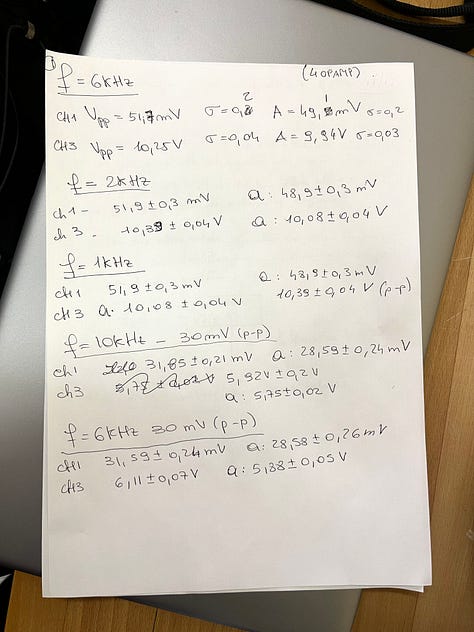 ① f = 6kHz
(4 OPAMP)
CH1 Vpp = 51,7 mV σ = 0,2 A = 49,1 mV σ = 0,2
CH3 Vpp = 10,25V σ = 0,04 A = 9,94V σ = 0,03
f = 2kHz
ch1 - 51,9 ± 0,3 mV a: 48,9 ± 0,3 mV
ch3 - 10,39 ± 0,04 V a: 10,08 ± 0,04 V
f = 1kHz
CH1 51,9 ± 0,3 mV a: 48,9 ± 0,3 mV
CH3 a: 10,08 ± 0,04 V 10,39 ± 0,04 V (p-p)
f = 10kHz - 30mV (p-p)
ch1 31,85 ± 0,21 mV a: 28,59 ± 0,24 mV
ch3 5,78 ± 0,02 V 5,92V ± 0,2 V
a: 5,75 ± 0,02 V
f = 6kHz 30 mV (p-p)
CH1 31,59 ± 0,24 mV a: 28,58 ± 0,26 mV
CH3 6,11 ± 0,07 V a: 5,88 ± 0,05 V